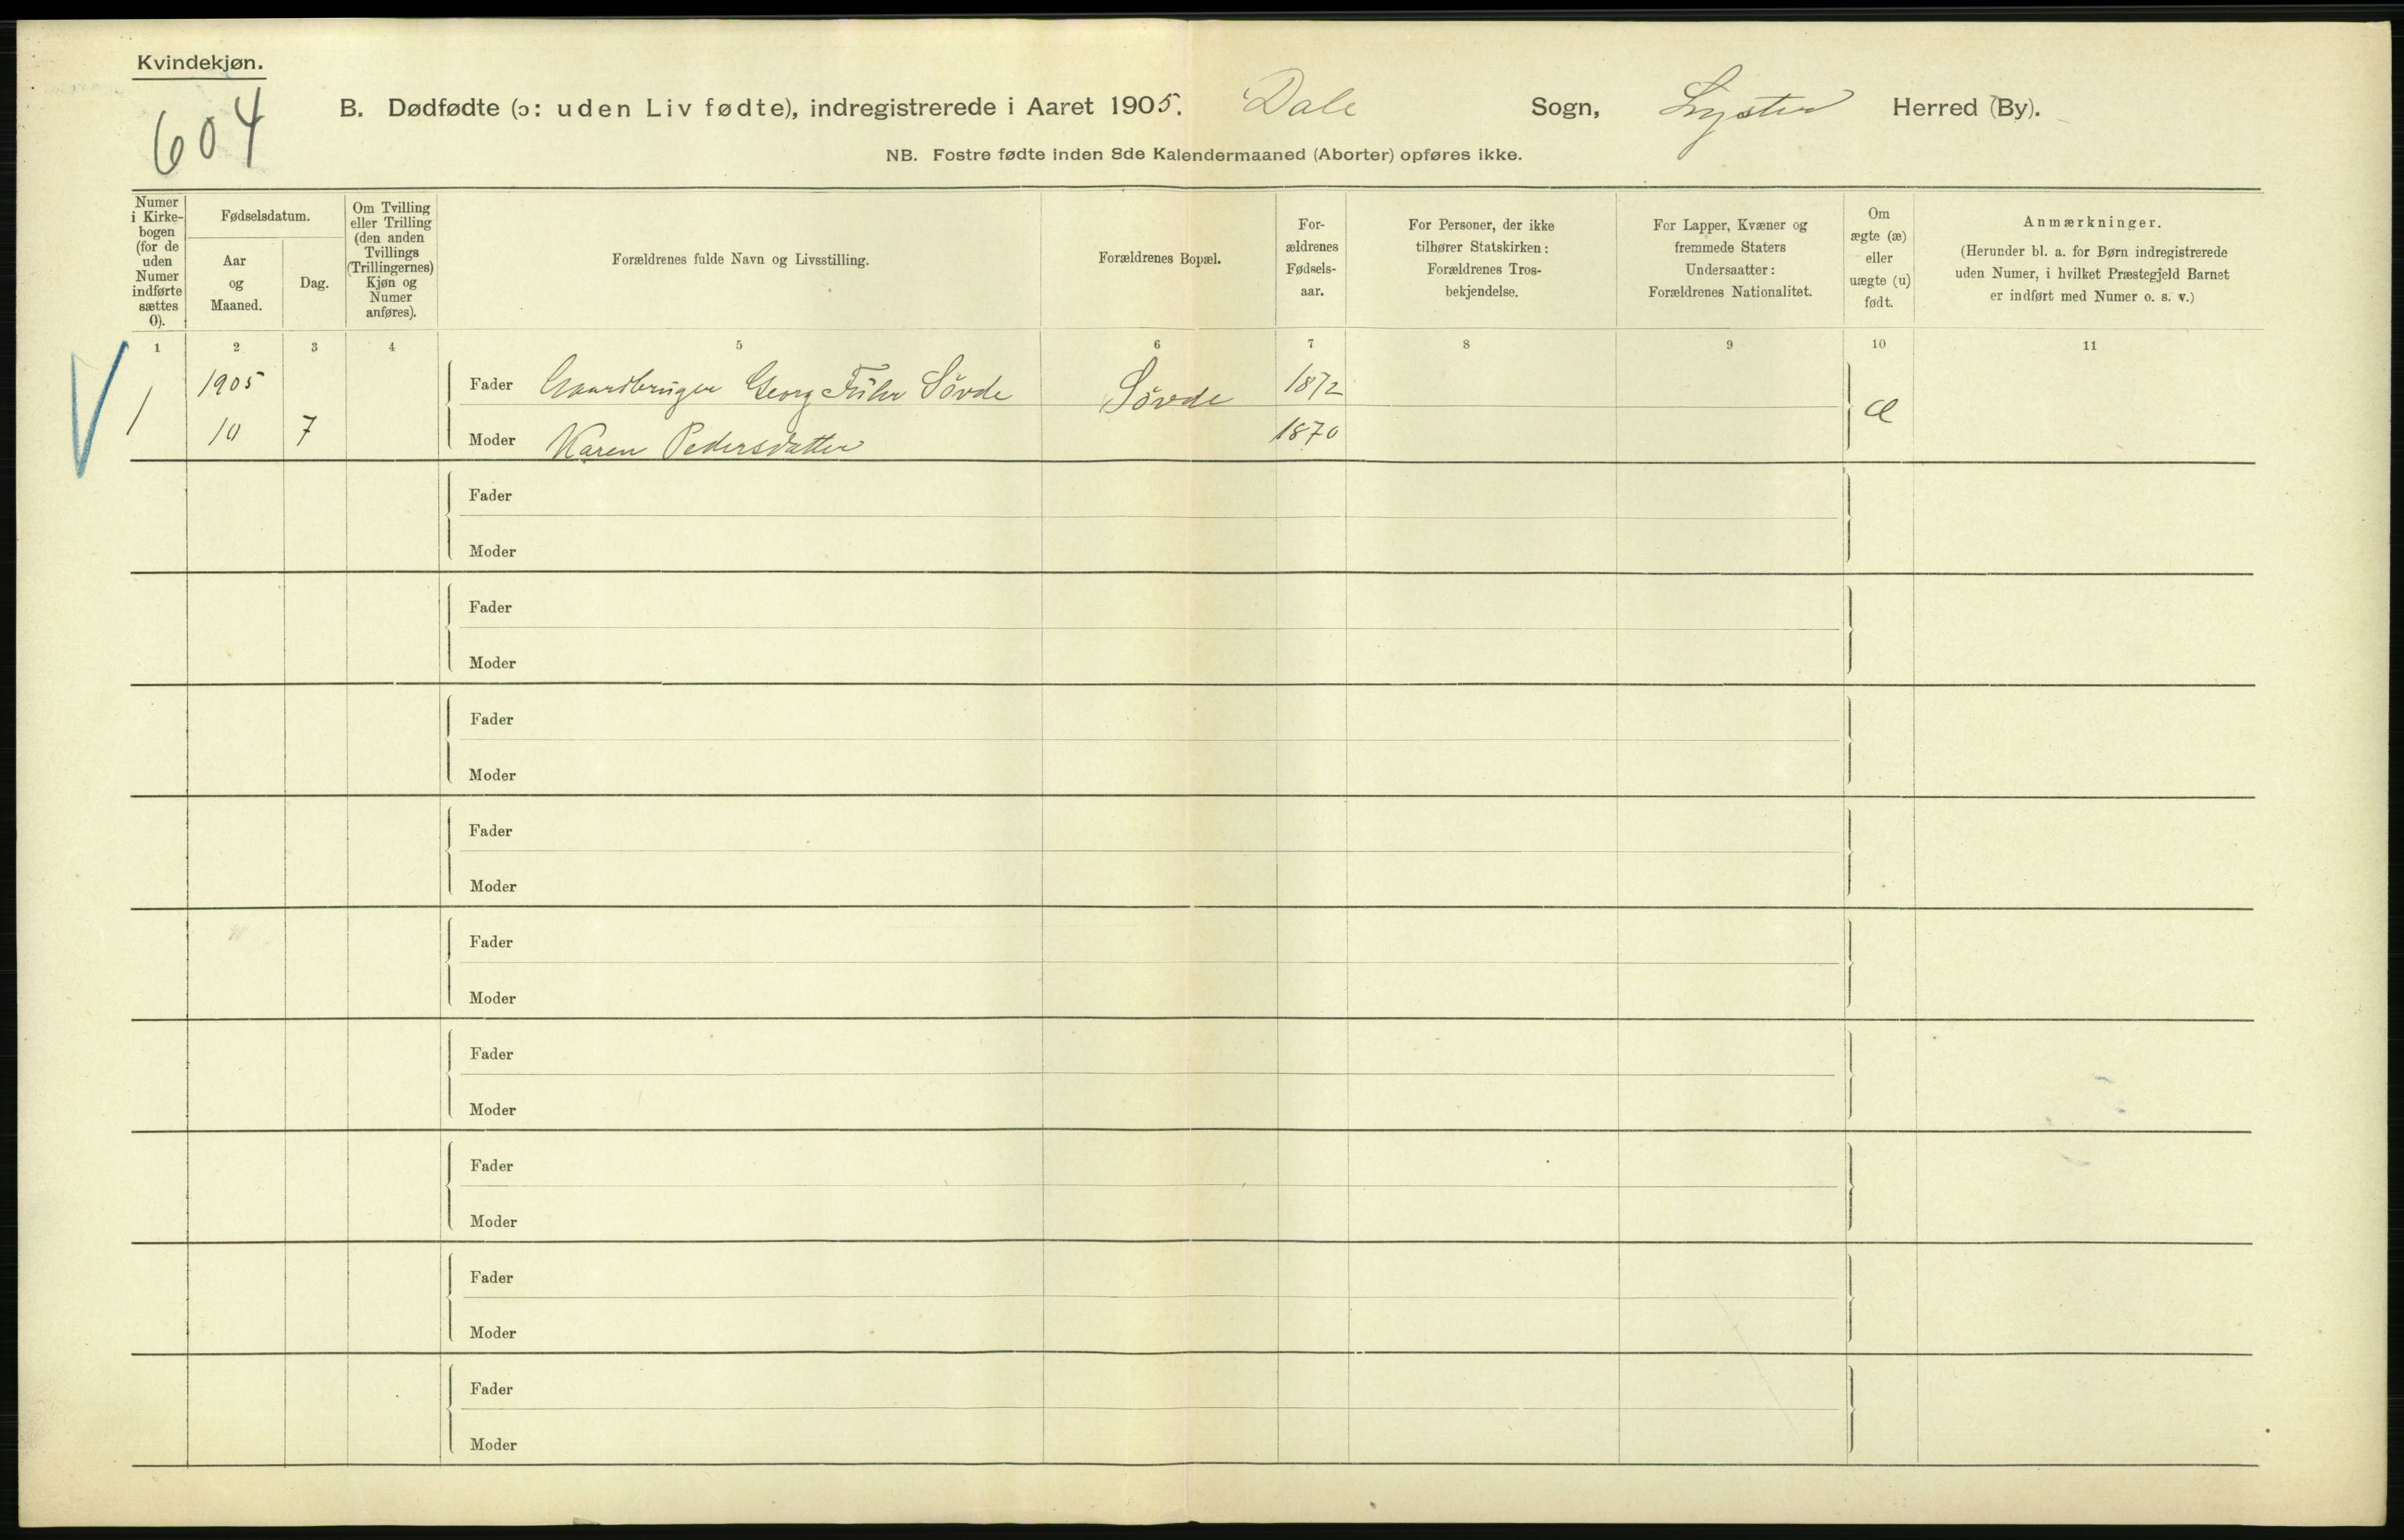 Kvindekjøn.
604
B. Dødfødte (ɔ: uden Liv fødte), indregistrerede i Aaret 1905. Dale Sogn, Lyster Herred (By).
NB. Fostre fødte inden 8de Kalendermaaned (Aborter) opføres ikke.
Numer
i Kirke-
bogen
(for de
uden
Numer
indførte
sættes
0).
Fødselsdatum.
Aar
og
Maaned.
Dag.
Om Tvilling
eller Trilling
(den anden
Tvillings
(Trillingernes)
Kjøn og
Numer
anføres).
Forældrenes fulde Navn og Livsstilling.
Forældrenes Bopæl.
For-
ældrenes
Fødsels-
aar.
For Personer, der ikke
tilhører Statskirken:
Forældrenes Tros-
bekjendelse.
For Lapper, Kvæner og
fremmede Staters
Undersaatter:
Forældrenes Nationalitet.
Om
ægte (æ)
eller
uægte (u)
født.
Anmærkninger.
(Herunder bl. a. for Børn indregistrerede
uden Numer, i hvilket Præstegjeld Barnet
er indført med Numer o. s. v.)
1 2 3 4 5 6 7 8 9 10 11
1 1905 Fader Gaardbruger Georg Führ Sövde Sövde 1872 æ
10 7 Moder Karen Pedersdatter 1870
Fader
Moder
Fader
Moder
Fader
Moder
Fader
Moder
Fader
Moder
Fader
Moder
Fader
Moder
Fader
Moder
Fader
Moder